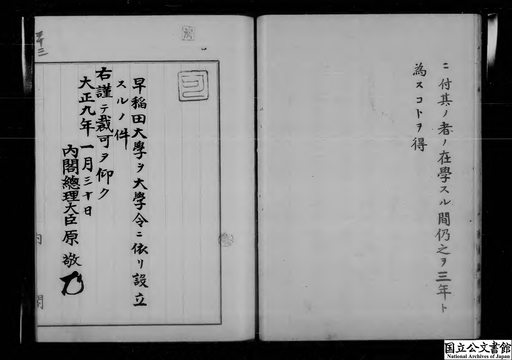 ニ付其ノ者ノ在學スル間仍之ヲ三年ト
為スコトヲ得
早稲田大學ヲ大學令ニ依リ設立
スルノ件
右謹テ裁可ヲ仰ク
大正九年一月三十日
内閣總理大臣原敬
内閣
国立公文書館
National Archives of Japan